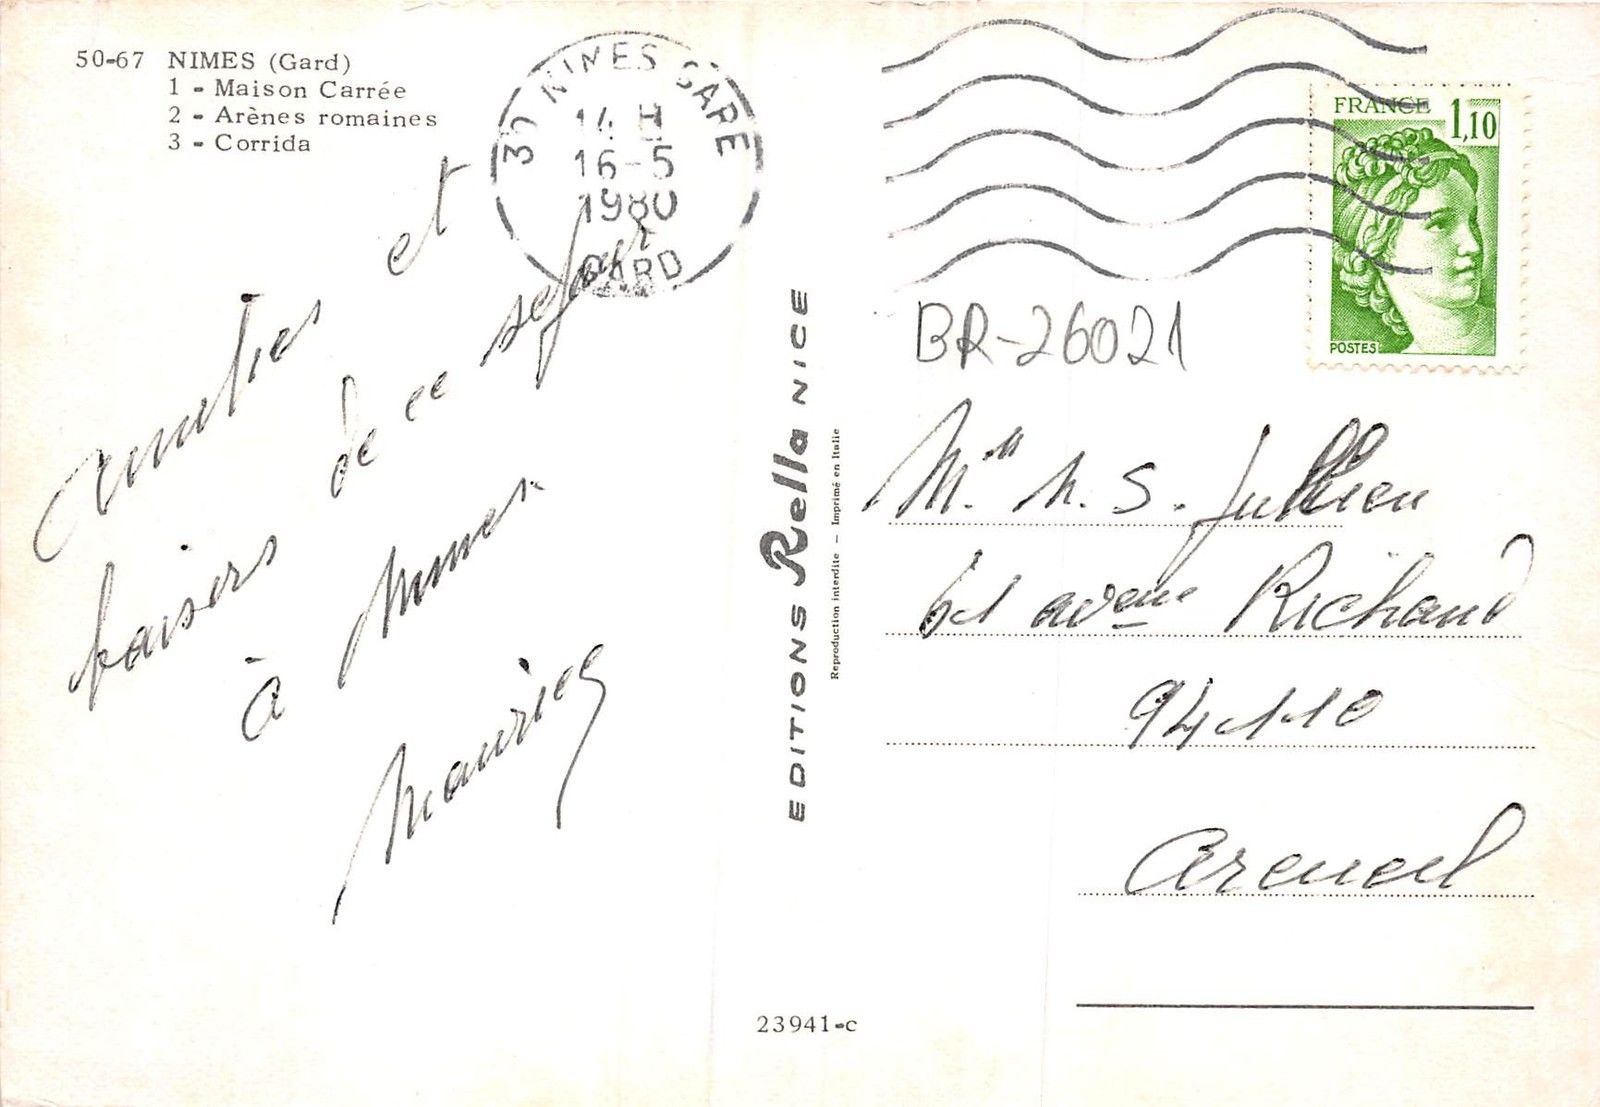 50-67 NIMES (Gard)
1 - Maison Carrée
2 - Arènes romaines
3 - Corrida
30 NIMES GARE
14 H
16-5
1980
GARD
FRANCE 1,10
POSTES
BR-26021
amitiés et
baisers de ce séjour
à Nimes
Maurice
EDITIONS Rella NICE
Reproduction interdite — Imprimé en Italie
Mlle M. S. Jullien
61 avenue Richaud
94110
Arcueil
23941-c